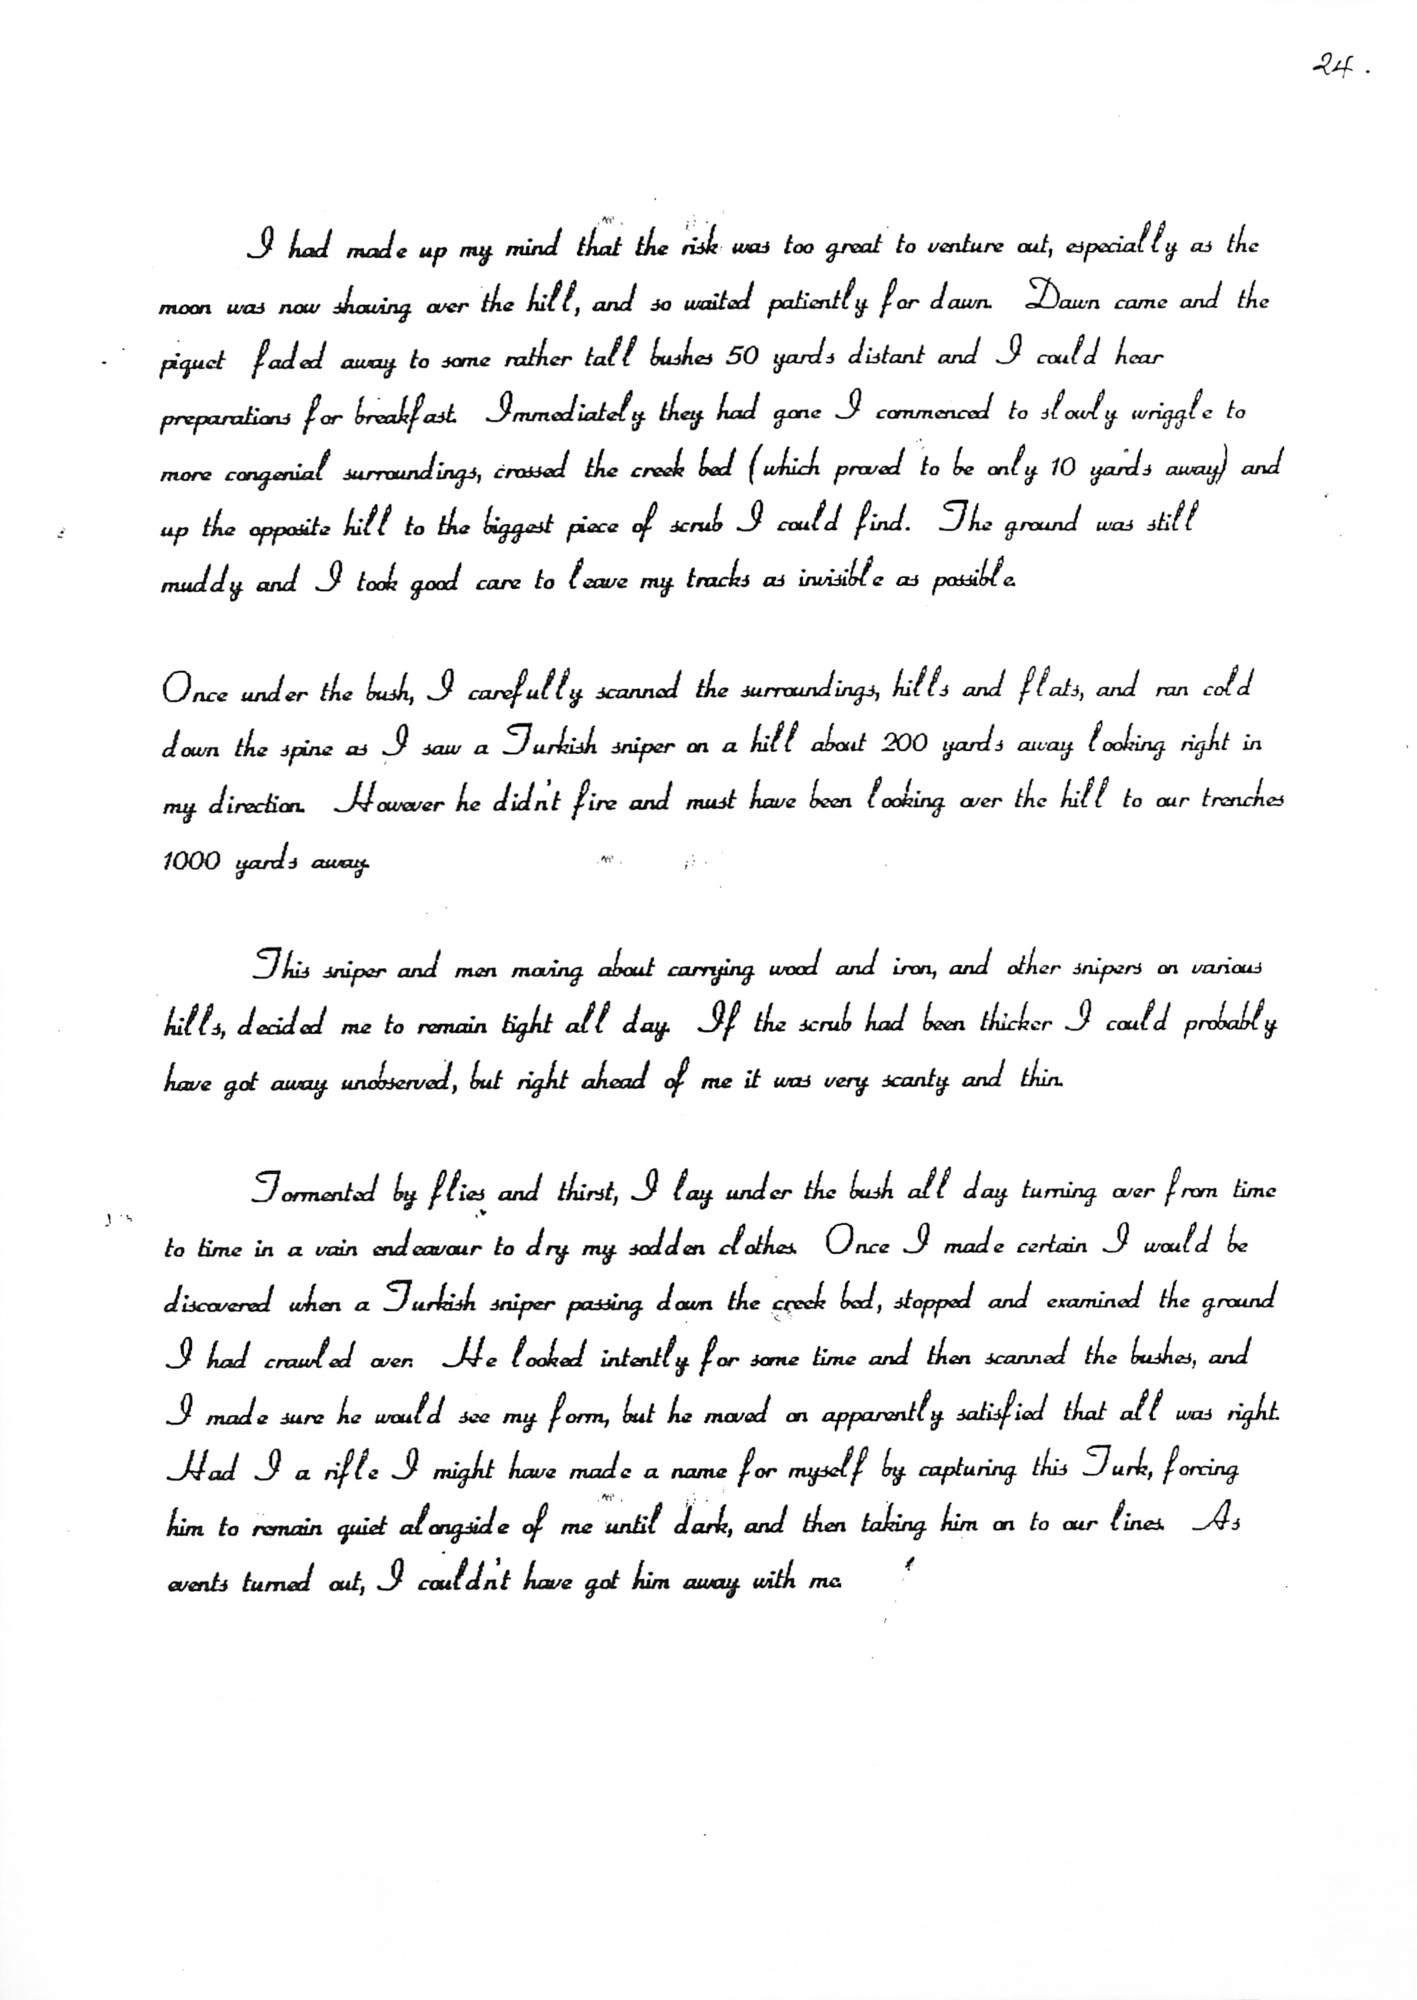 24.
I had made up my mind that the risk was too great to venture out, especially as the
moon was now showing over the hill, and so waited patiently for dawn. Dawn came and the
piquet faded away to some rather tall bushes 50 yards distant and I could hear
preparations for breakfast. Immediately they had gone I commenced to slowly wriggle to
more congenial surroundings, crossed the creek bed (which proved to be only 10 yards away) and
up the opposite hill to the biggest piece of scrub I could find. The ground was still
muddy and I took good care to leave my tracks as invisible as possible.
Once under the bush, I carefully scanned the surroundings, hills and flats, and ran cold
down the spine as I saw a Turkish sniper on a hill about 200 yards away looking right in
my direction. However he didn't fire and must have been looking over the hill to our trenches
1000 yards away.
This sniper and men moving about carrying wood and iron, and other snipers on various
hills, decided me to remain tight all day. If the scrub had been thicker I could probably
have got away unobserved, but right ahead of me it was very scanty and thin.
Tormented by flies and thirst, I lay under the bush all day turning over from time
to time in a vain endeavour to dry my sodden clothes. Once I made certain I would be
discovered when a Turkish sniper passing down the creek bed, stopped and examined the ground
I had crawled over. He looked intently for some time and then scanned the bushes, and
I made sure he would see my form, but he moved on apparently satisfied that all was right.
Had I a rifle I might have made a name for myself by capturing this Turk, forcing
him to remain quiet alongside of me until dark, and then taking him on to our lines. As
events turned out, I couldn't have got him away with me.